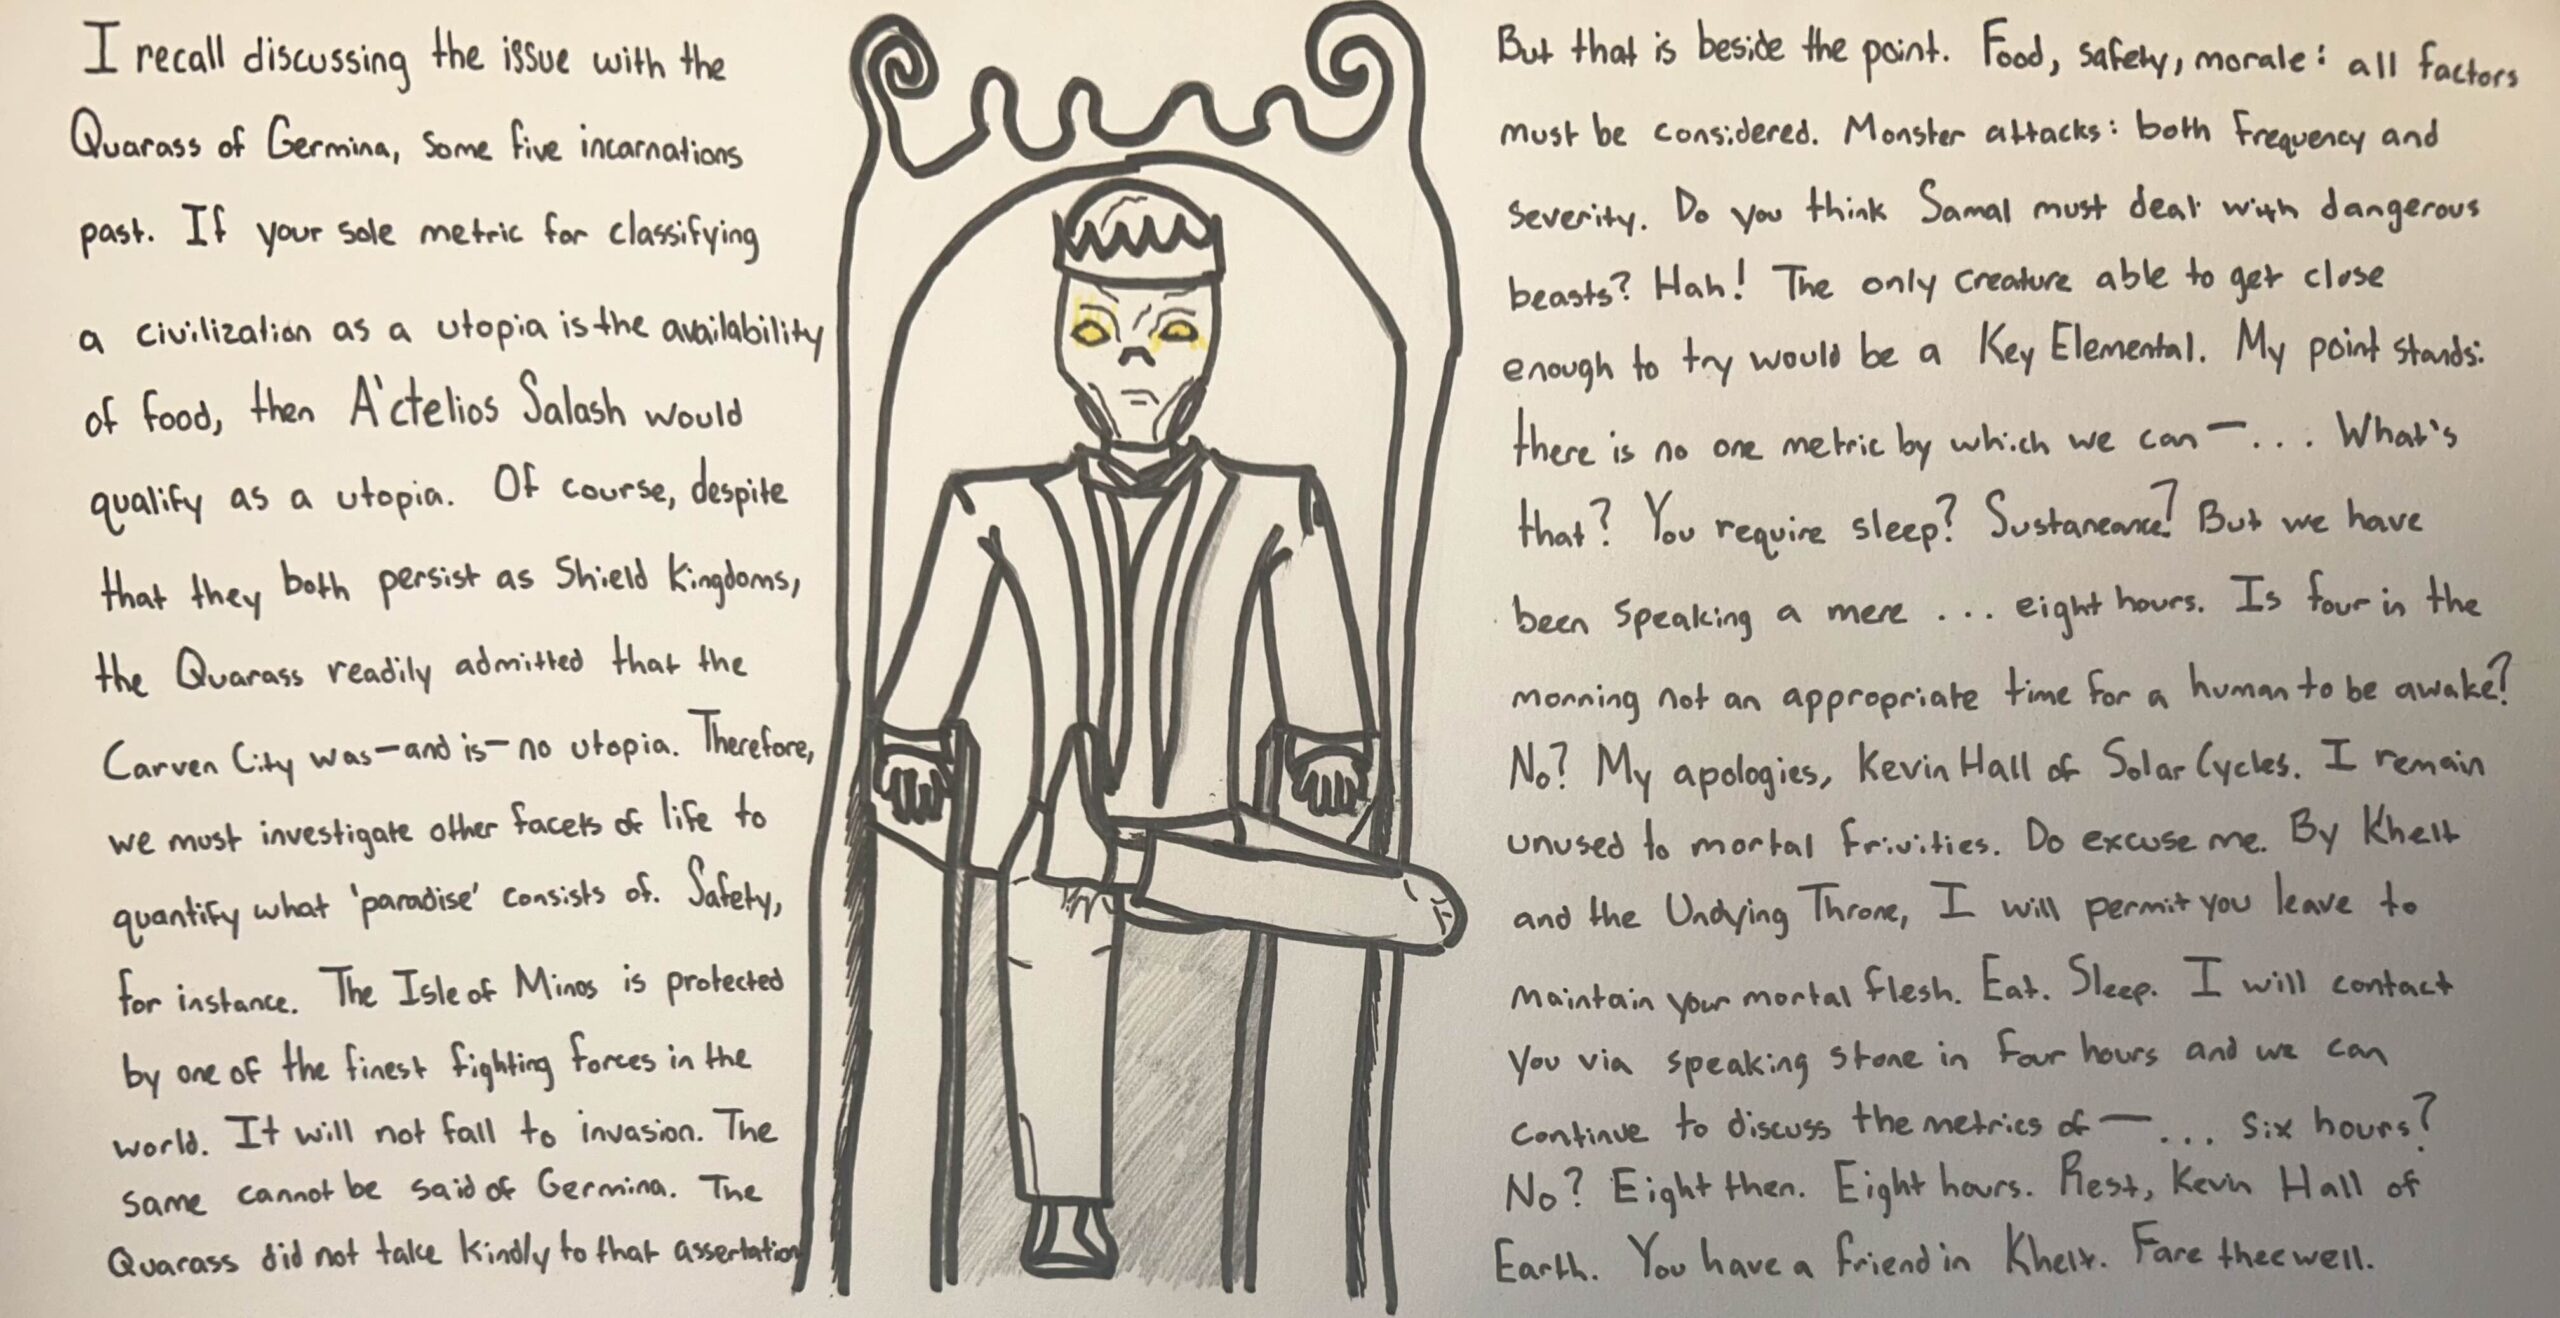 I recall discussing the issue with the
Quarass of Germina, some five incarnations
past. If your sole metric for classifying
a civilization as a utopia is the availability
of food, then A'ctelios Salash would
qualify as a utopia. Of course, despite
that they both persist as Shield Kingdoms,
the Quarass readily admitted that the
Carven City was—and is—no utopia. Therefore,
we must investigate other facets of life to
quantify what 'paradise' consists of. Safety,
for instance. The Isle of Minos is protected
by one of the finest fighting forces in the
world. It will not fall to invasion. The
same cannot be said of Germina. The
Quarass did not take kindly to that assertation
But that is beside the point. Food, safety, morale: all factors
must be considered. Monster attacks: both frequency and
severity. Do you think Samal must deal with dangerous
beasts? Hah! The only creature able to get close
enough to try would be a Key Elemental. My point stands:
there is no one metric by which we can—... What's
that? You require sleep? Sustaneance? But we have
been speaking a mere ... eight hours. Is four in the
morning not an appropriate time for a human to be awake?
No? My apologies, Kevin Hall of Solar Cycles. I remain
unused to mortal frivities. Do excuse me. By Khelt
and the Undying Throne, I will permit you leave to
maintain your mortal flesh. Eat. Sleep. I will contact
you via speaking stone in four hours and we can
continue to discuss the metrics of—... six hours?
No? Eight then. Eight hours. Rest, Kevin Hall of
Earth. You have a friend in Khelt. Fare thee well.